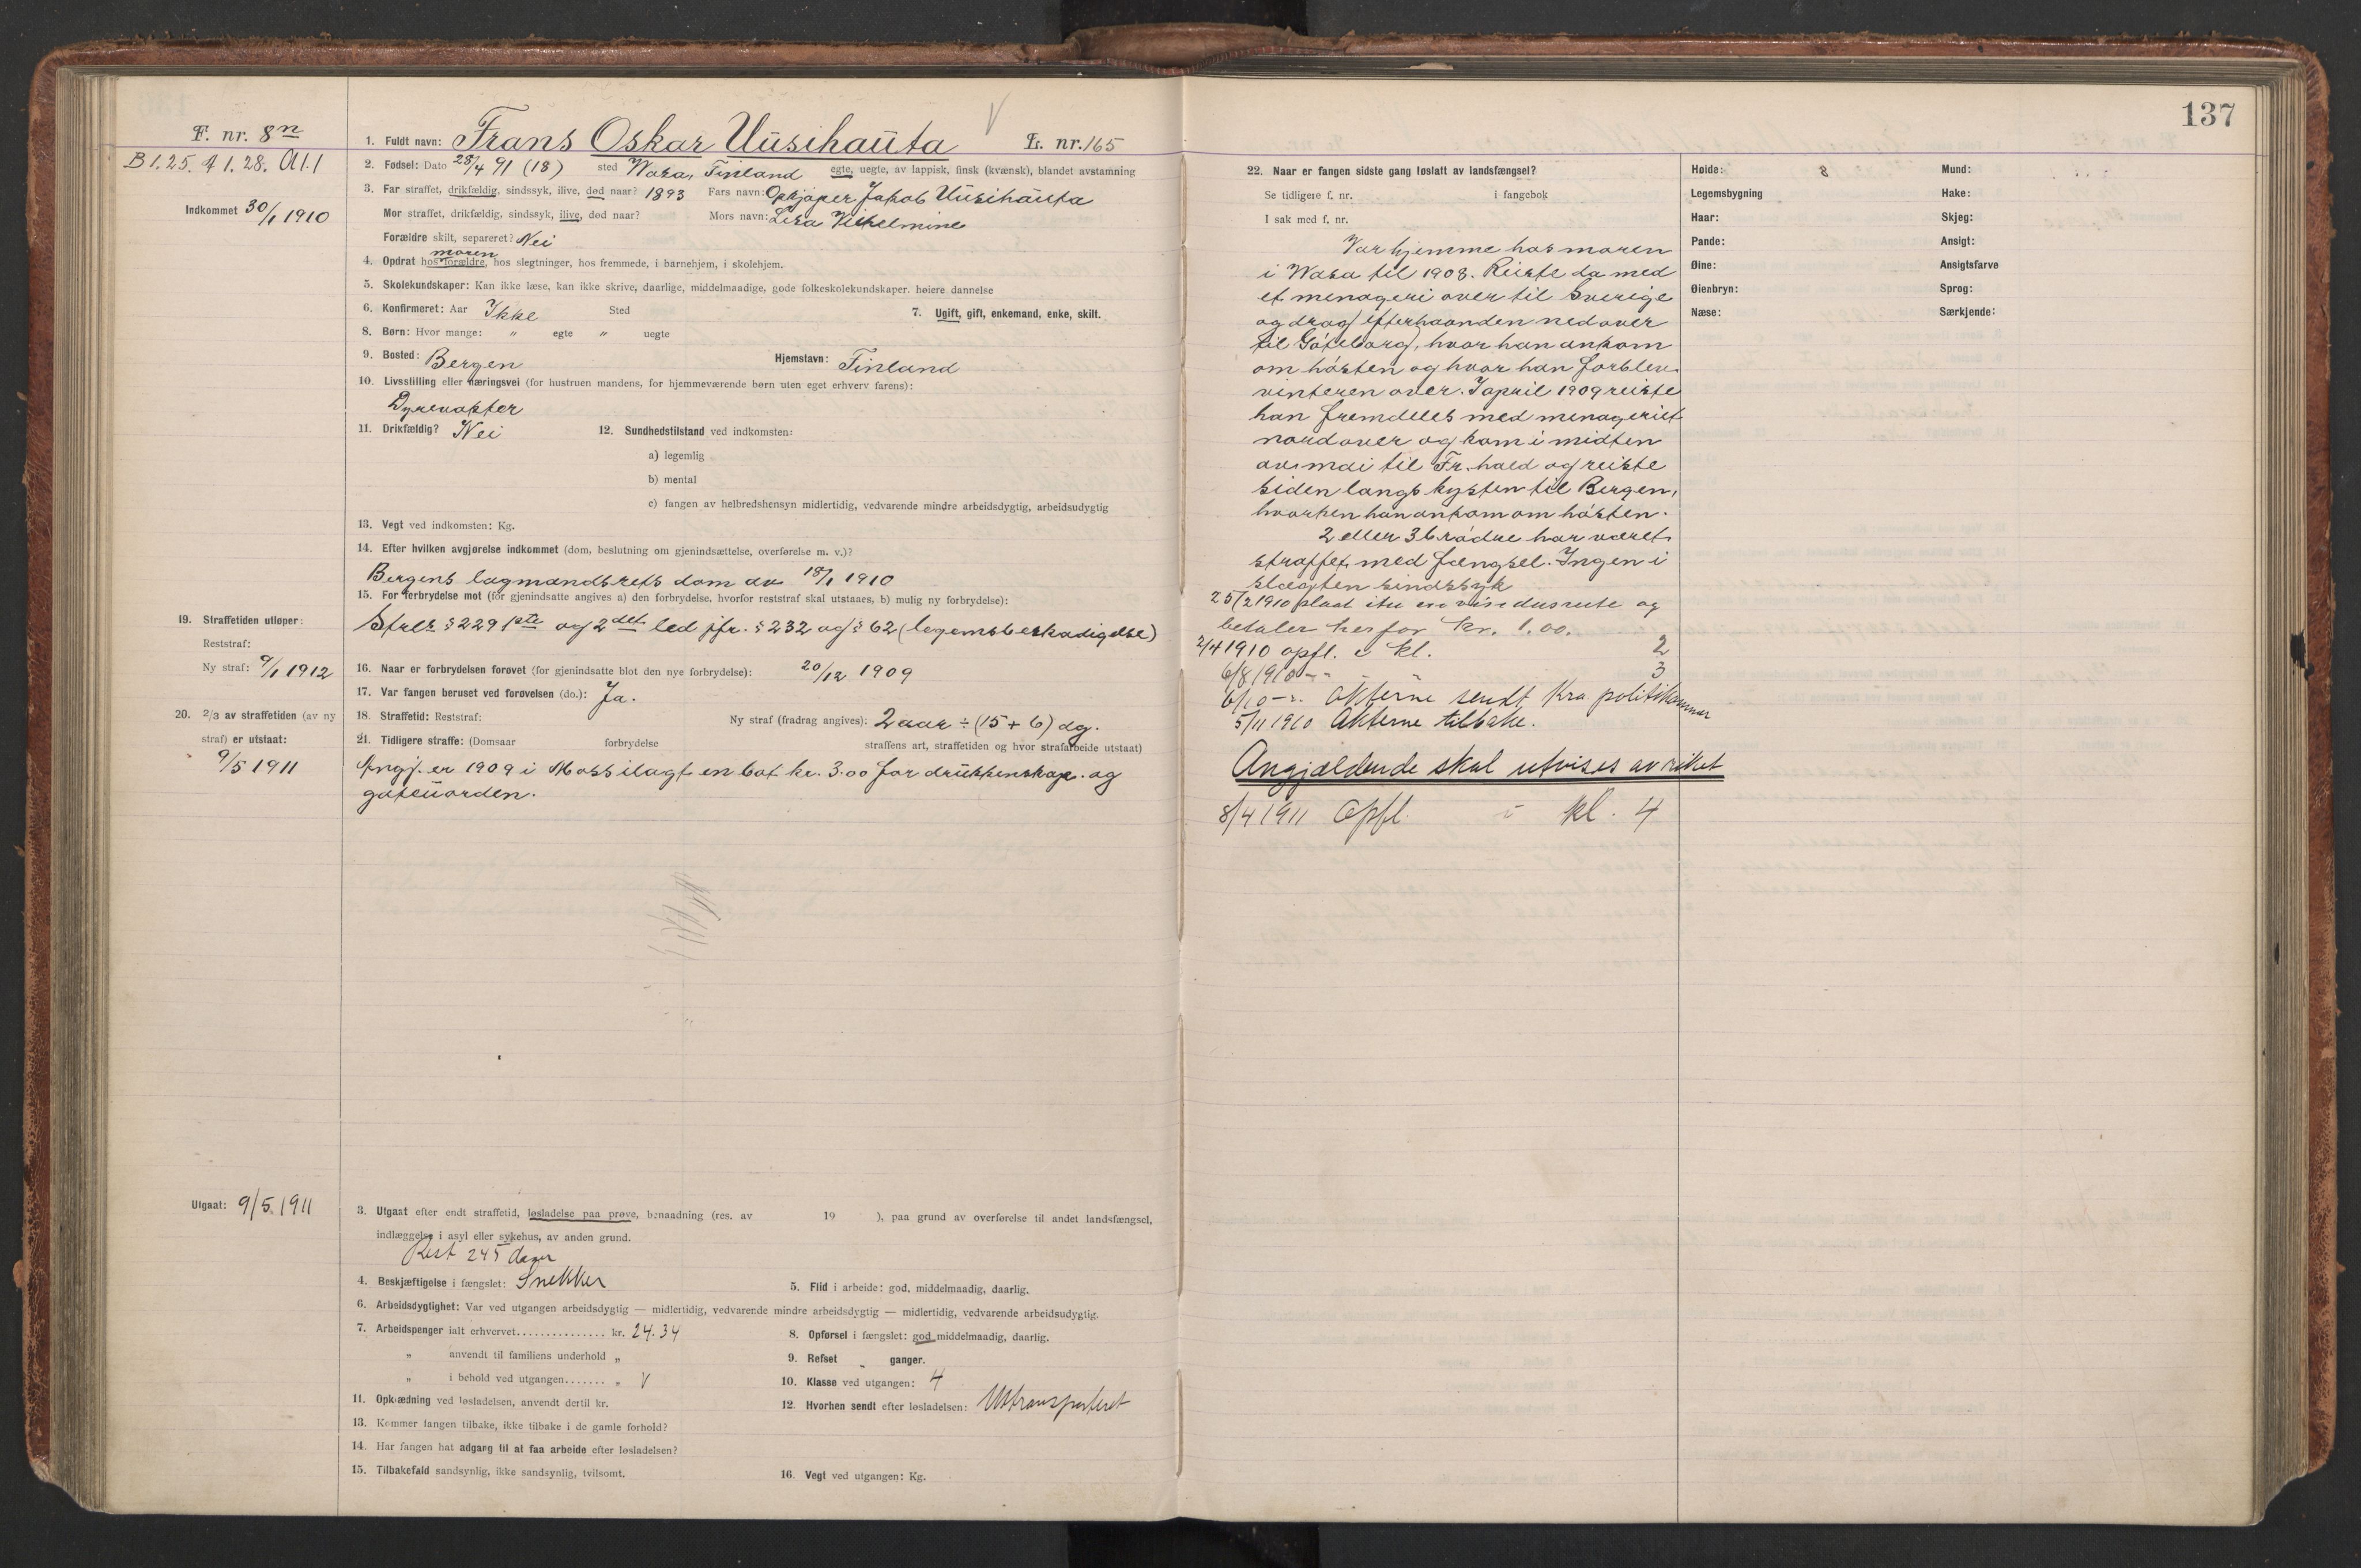 137
F. nr. 8n
B 1.25. A 1.28. Al.1
Indkommet 30/1 1910
1. Fuldt navn: Frans Oskar Uusihauta L. nr. 165
2. Fødsel: Dato 28/4 91 (18) sted Wasa, Finland egte, uegte, av lappisk, finsk (kvænsk), blandet avstamning
3. Far straffet, drikfældig, sindssyk, ilive, død naar? 1893 Fars navn: Opkjøper Jakob Uusihauta
Mor straffet, drikfældig, sindssyk, ilive, død naar? Mors navn: Lisa Vilhelmine
Forældre skilt, separeret? Nei
moren
4. Opdrat hos forældre, hos slegtninger, hos fremmede, i barnehjem, i skolehjem.
5. Skolekundskaper: Kan ikke læse, kan ikke skrive, daarlige, middelmaadige, gode folkeskolekundskaper. høiere dannelse
6. Konfirmeret: Aar Ikke Sted 7. Ugift, gift, enkemand, enke, skilt.
8. Børn: Hvor mange: " egte " uegte
9. Bosted: Bergen Hjemstavn: Finland
10. Livsstilling eller næringsvei (for hustruen mandens, for hjemmeværende børn uten eget erhverv farens):
Dyrevokter
11. Drikfældig? Nei 12. Sundhedstilstand ved indkomsten:
a) legemlig
b) mental
c) fangen av helbredshensyn midlertidig, vedvarende mindre arbeidsdygtig, arbeidsudygtig
13. Vegt ved indkomsten: Kg.
14. Efter hvilken avgjørelse indkommet (dom, beslutning om gjenindsættelse, overførelse m. v.)?
Bergens lagmandsrets dom av 18/1 1910
15. For forbrydelse mot (for gjenindsatte angives a) den forbrydelse, hvorfor reststraf skal utstaaes, b) mulig ny forbrydelse):
Strlr § 229 1ste og 2det led jfr. § 232 og § 62 (legemsbeskadigelse)
19. Straffetiden utløper:
Reststraf:
Ny straf: 9/1 1912
16. Naar er forbrydelsen forøvet (for gjenindsatte blot den nye forbrydelse): 20/12 1909
17. Var fangen beruset ved forøvelsen (do.): Ja.
20. 2/3 av straffetiden (av ny
straf) er utstaat:
9/5 1911
18. Straffetid: Reststraf: Ny straf (fradrag angives): 2 aar ÷ (15 + 6) dg.
21. Tidligere straffe: (Domsaar forbrydelse straffens art, straffetiden og hvor strafarbeide utstaat)
Angj. er 1909 i Moss ilagt en bot kr. 3.00 for drukkenskap og
gateuorden.
Utgaat: 9/5 1911
3. Utgaat efter endt straffetid, løsladelse paa prøve, benaadning (res. av 19 ), paa grund av overførelse til andet landsfængsel,
indlæggelse i asyl eller sykehus, av anden grund.
Rest 245 dager
4. Beskjæftigelse i fængslet: Snekker 5. Flid i arbeide: god, middelmaadig, daarlig.
6. Arbeidsdygtighet: Var ved utgangen arbeidsdygtig — midlertidig, vedvarende mindre arbeidsdygtig — midlertidig, vedvarende arbeidsudygtig.
7. Arbeidspenger ialt erhvervet............... kr. 24.34 8. Opførsel i fængslet: god middelmaadig, daarlig.
" anvendt til familiens underhold " 9. Refset " ganger.
" i behold ved utgangen....... " 10. Klasse ved utgangen: 4
11. Opklædning ved løsladelsen, anvendt dertil kr. 12. Hvorhen sendt efter løsladelsen: Uttransporteret
13. Kommer fangen tilbake, ikke tilbake i de gamle forhold?
14. Har fangen hat adgang til at faa arbeide efter løsladelsen?
15. Tilbakefald sandsynlig, ikke sandsynlig, tvilsomt. 16. Vegt ved utgangen: Kg.
22. Naar er fangen sidste gang løslatt av landsfængsel?
Se tidligere f. nr. i fangebok
I sak med f. nr.
Var hjemme hos moren
i Wasa til 1908. Reiste da med
et menageri over til Sverige
og drog efterhaanden nedover
til Göteborg, hvor han ankom
om hösten og hvor han forblev
vinteren over. I april 1909 reiste
han fremdeles med menageriet
nordover og kom i midten
av mai til Fr.hald og reiste
siden langs kysten til Bergen,
hvorhen han ankom om hösten.
2 eller 3 brödre har været
straffet med fængsel. Ingen i
slægten sindssyk
25/2 1910 plaat itu en vinduesrute og
betaler herfor kr. 1.00.
2/4 1910 opfl. i kl. 2
6/8 1910 - " 3
6/10 - ". Akterne sendt Kra politikammer
5/11 1910 Akterne tilbake.
Angjældende skal utvises av riket
8/4 1911 Opfl. i kl. 4
Høide: 8 Mund:
Legemsbygning Hake:
Haar: Skjeg:
Pande: Ansigt:
Øine: Ansigtsfarve
Øienbryn: Sprog:
Næse: Særkjende: